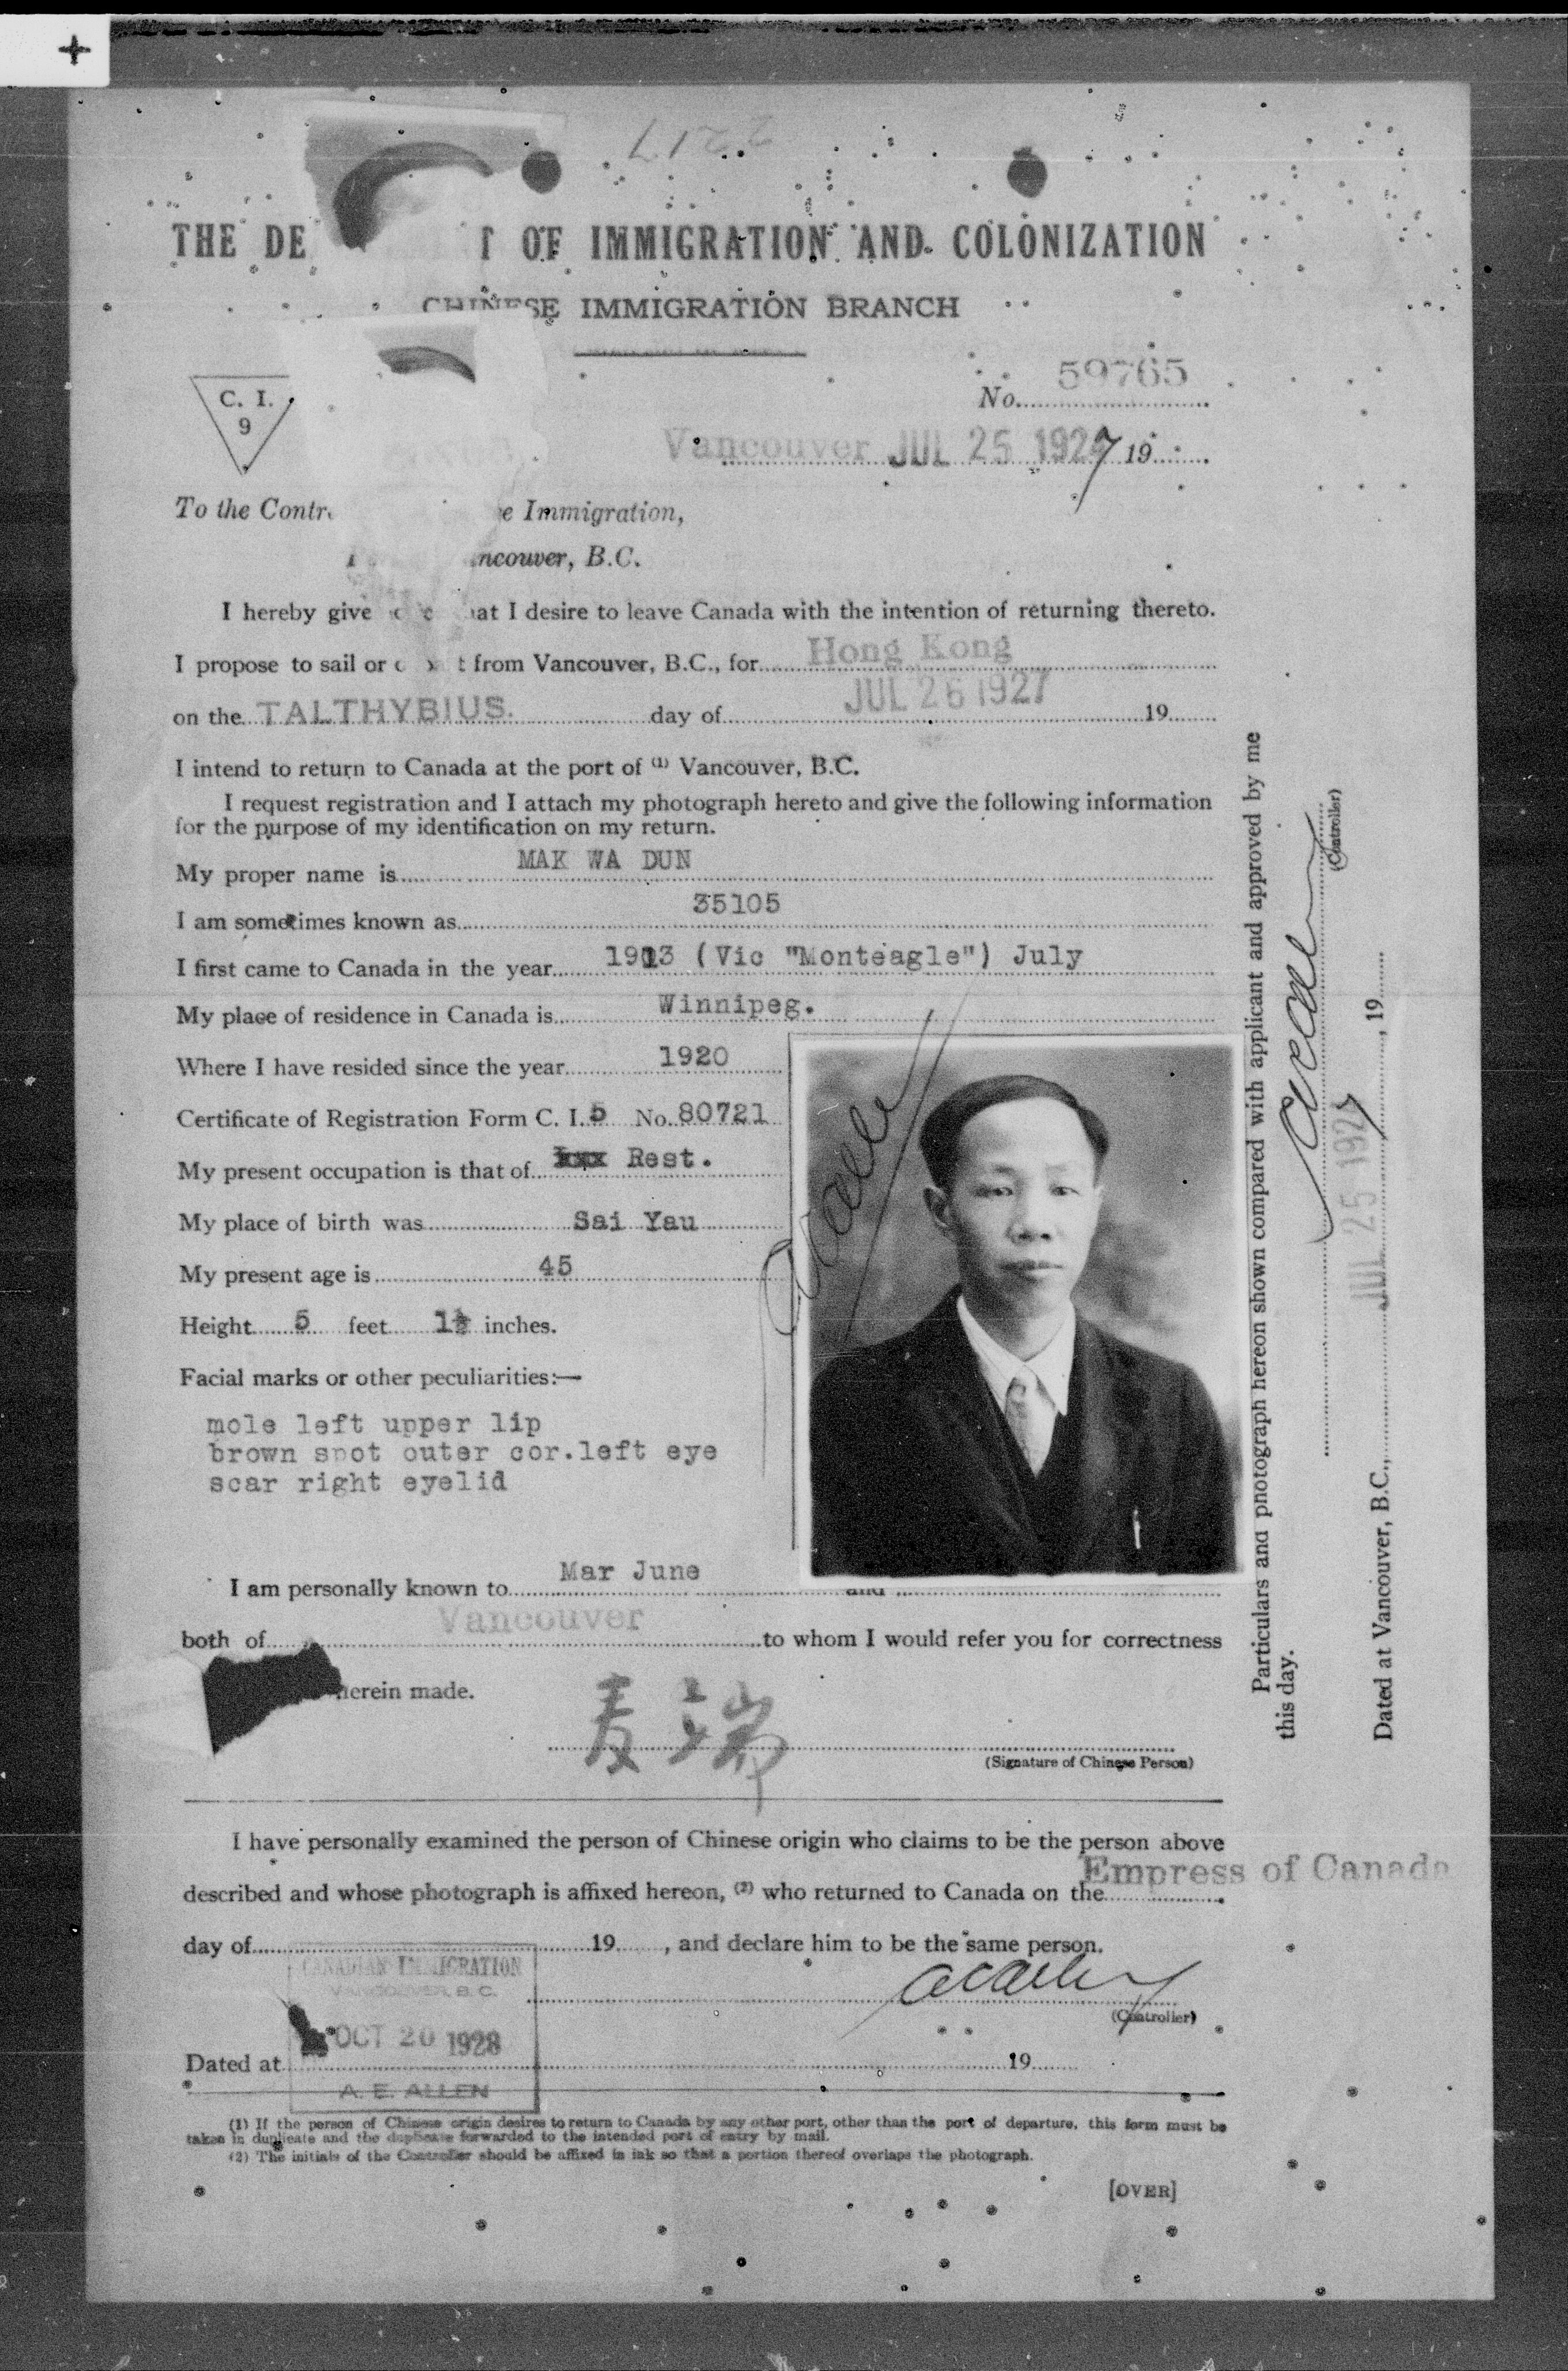 THE DE T OF IMMIGRATION AND COLONIZATION
CHINESE IMMIGRATION BRANCH
C. I.
9
No. 59765
Vancouver JUL 25 1927 19
To the Contr e Immigration,
ncouver, B.C.
I hereby give at I desire to leave Canada with the intention of returning thereto.
I propose to sail or t from Vancouver, B.C., for Hong Kong
on the TALTHYBIUS. day of JUL 26 1927 19
I intend to return to Canada at the port of (1) Vancouver, B.C.
I request registration and I attach my photograph hereto and give the following information
for the purpose of my identification on my return.
My proper name is MAK WA DUN
I am sometimes known as 35105
I first came to Canada in the year 1913 (Vic "Monteagle") July
My place of residence in Canada is Winnipeg.
Where I have resided since the year 1920
Certificate of Registration Form C. I. 5 No. 80721
My present occupation is that of Rest.
My place of birth was Sai Yau
My present age is 45
Height 5 feet 1½ inches.
Facial marks or other peculiarities:—
mole left upper lip
brown spot outer cor.left eye
scar right eyelid
I am personally known to Mar June and
both of Vancouver to whom I would refer you for correctness
herein made.
麦瑞
(Signature of Chinese Person)
I have personally examined the person of Chinese origin who claims to be the person above
described and whose photograph is affixed hereon, (2) who returned to Canada on the Empress of Canada
day of 19 , and declare him to be the same person.
(Controller)
CANADIAN IMMIGRATION
VANCOUVER, B.C.
OCT 20 1928
A. E. ALLEN
Dated at 19
(1) If the person of Chinese origin desires to return to Canada by any other port, other than the port of departure, this form must be
taken in duplicate and the duplicate forwarded to the intended port of entry by mail.
(2) The initials of the Controller should be affixed in ink so that a portion thereof overlaps the photograph.
[OVER]
Particulars and photograph hereon shown compared with applicant and approved by me
this day.
(Controller)
Dated at Vancouver, B.C., JUL 25 1927, 19